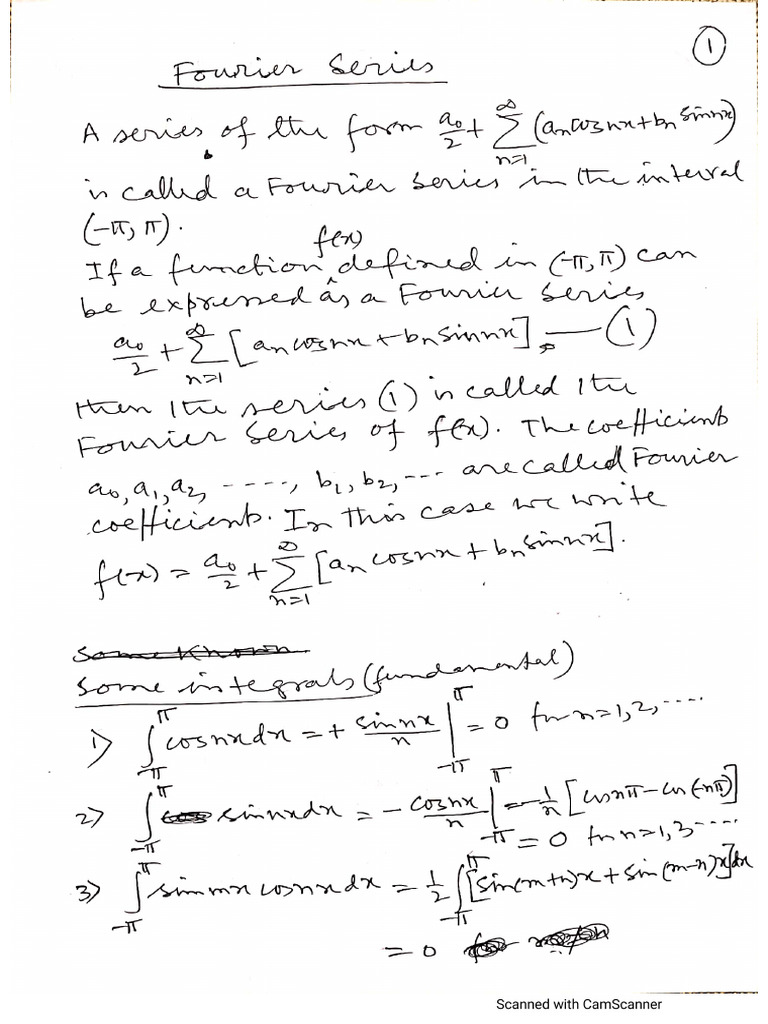 ①
Fourier Series
A series of the form a₀/2 + ∑_{n=1}^{∞} (aₙ cos nx + bₙ sin nx)
is called a Fourier Series in the interval
(-π, π).
If a function f(x) defined in (-π, π) can
be expressed as a Fourier Series
a₀/2 + ∑_{n=1}^{∞} [aₙ cos nx + bₙ sin nx]. — (1)
then the series (1) is called the
Fourier Series of f(x). The coefficients
a₀, a₁, a₂, - - - - -, b₁, b₂, - - - are called Fourier
coefficients. In this case we write
f(x) = a₀/2 + ∑_{n=1}^{∞} [aₙ cos nx + bₙ sin nx].
Some Known
Some integrals (fundamental)
1) ∫_{-π}^{π} cos nx dx = + sin nx / n |_{-π}^{π} = 0 for n = 1, 2, ....
2) ∫_{-π}^{π} sin nx dx = - cos nx / n |_{-π}^{π} = -1/n [cos nπ - cos(-nπ)]
= 0 for n = 1, 3 ....
3) ∫_{-π}^{π} sin mx cos nx dx = 1/2 ∫_{-π}^{π} [sin(m+n)x + sin(m-n)x] dx
= 0
Scanned with CamScanner